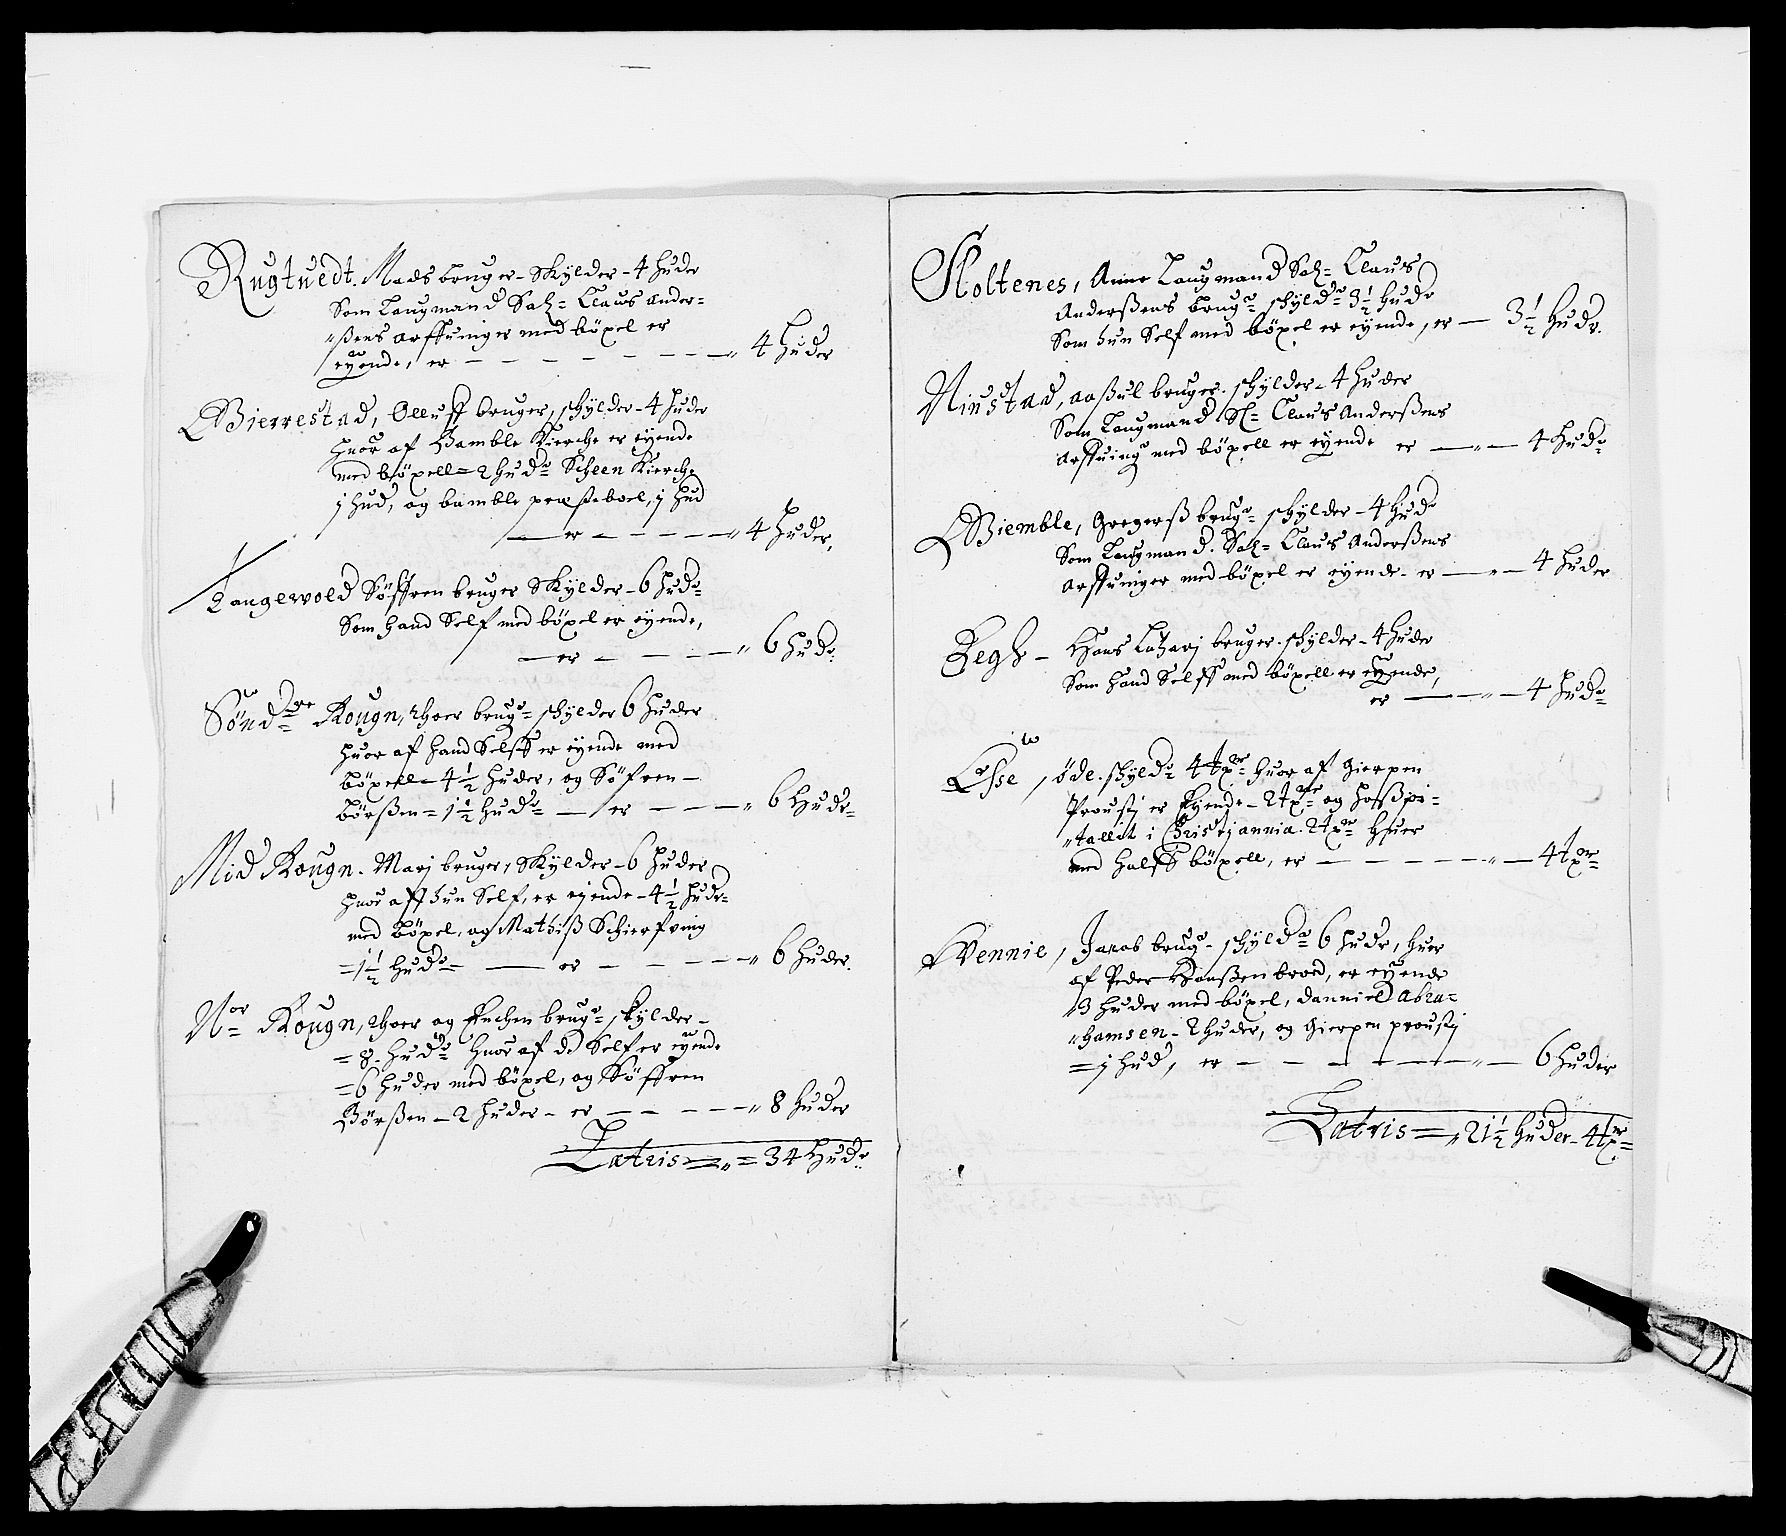 Rugtuedt. Mads bruger - skylder - 4 huder
Som Laugmand Sal= Claus Ander=
"ßens arffuinger med böxel er
eyende, er - - - - - - - - " 4 Huder
Bierrestad, Olluff bruger, skylder - 4 huder
huor af Bamble Kierche er eyende
med böxell = 2 hudr Scheen Kierche
j hud, og bamble præsteboel, j hud
— er - - - - - " 4 Huder,
Langewold Söffren bruger skylder - 6 hudr
Som hand Self med böxel er eyende,
— er - - - - " 6 hudr
Søndre Rougn, Thoer brugr skylder 6 huder
huor af hand Selff er eyende med
böxell - 4 1/2 huder, og Söfren -
Börßen = 1 1/2 hudr — er - - - " 6 Hudr
Mid Rougn. Marj bruger, skylder - 6 huder
huor aff hun Self, er eyende - 4 1/2 hudr
med böxel, og Mathiß Schierfving
= 1 1/2 hudr — er - - - - - " 6 huder.
Nor Rougn, Thoer og Enchen brugr skylder -
= 8 - hudr huor af de Self er eyende
= 6 huder med böxel, og Söffren
Börßen - 2 huder - er - - - - " 8 Huder
Latris = " = 34 Hudr
Holtenes, Anne Laugmand Sal= Claus
Anderßens brugr skyldr 3 1/2 hudr
Som hun Self med böxel er eyende, er — 3 1/2 Hudr.
Niustad, aaßul bruger. skylder - 4 huder
Som Laugmand Sl= Claus Anderßens
arffuingr med böxell er eyende er — " — 4 hudr
Biemble, Gregerß brugr skylder - 4 hudr
Som Laugmand. Sal= Claus Anderßens
arffuinger med böxel er eyende - er — " — 4 Huder
Hegh - Hans bruger. skylder - 4 huder
Som hand Selff med böxell er eyende,
er — " — 4 hudr
Esse, øde. skyldr 4 txr huor af Gierpen
Proustj er Eyende - 2 txr og Hoßpi=
"tallit i Christjannia. 2 txr Huer
med halff böxell, er - - - - - " — 4 txr
Wennie, Jacob brugr - skyldr 6 hudr, huer
af Peder Hanßen , er eyende
3 huder med böxel, danniel Abra=
"hamsen - 2 huder, og Gierpen proustj
= j hud, er - - - - - - " — 6 huder
Latris = " 21 1/2 huder - 4 txr